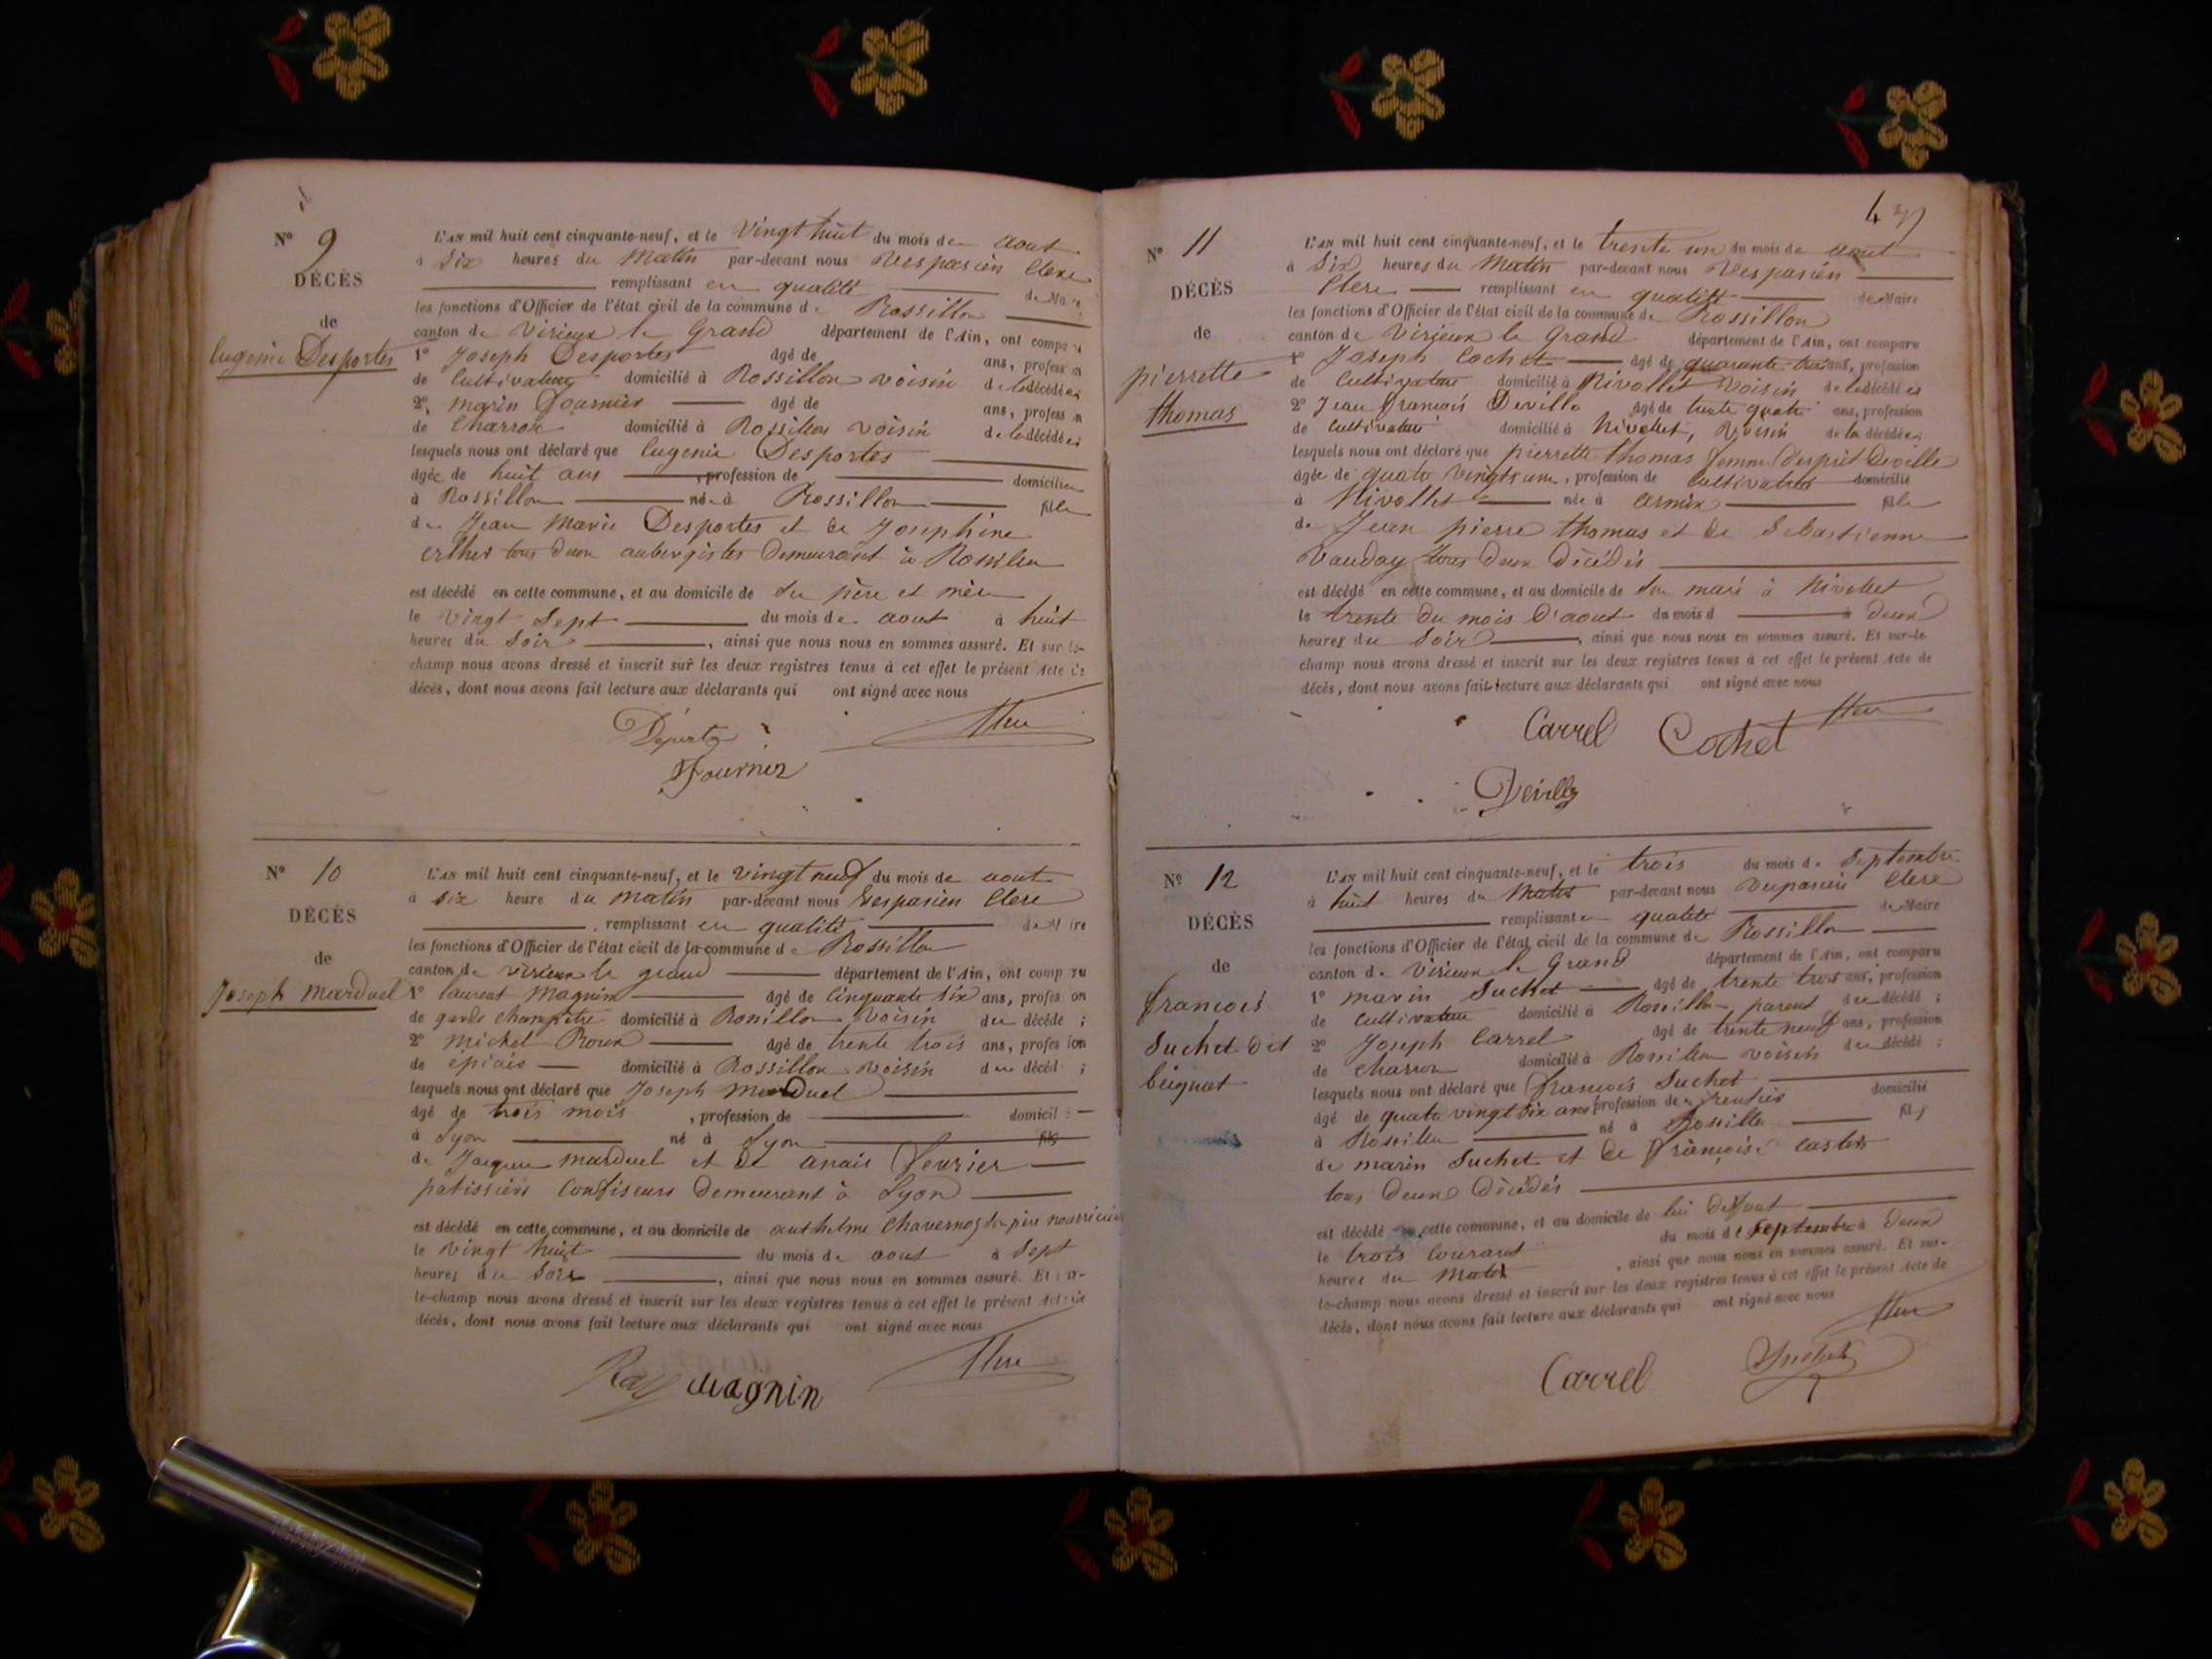 N° 9
DÉCÈS
de
Eugenie Desportes
L'AN mil huit cent cinquante-neuf, et le vingt huit du mois de aout
à six heures du matin par-devant nous Vespasien Clerc
remplissant en qualité de Maire
les fonctions d'Officier de l'état civil de la commune de Rossillon
canton de Virieux le Grand département de l'Ain, ont comparu
1° Joseph Desportes âgé de ans, profession
de Cultivateur domicilié à Rossillon voisin de la décédée;
2° marin Fournier âgé de ans, profession
de Charron domicilié à Rossillon voisin de la décédée;
lesquels nous ont déclaré que Eugenie Desportes
âgée de huit ans , profession de domiciliée
à Rossillon née à Rossillon fille
de Jean Marie Desportes et de Josephine
tous deux aubergistes demeurant à Rossillon
est décédé en cette commune, et au domicile de ses père et mère
le vingt sept du mois de aout à huit
heures du soir , ainsi que nous nous en sommes assuré. Et sur le-
champ nous avons dressé et inscrit sur les deux registres tenus à cet effet le présent Acte de
décès, dont nous avons fait lecture aux déclarants qui ont signé avec nous
Clerc
Fournier
N° 10
DÉCÈS
de
Joseph Marduel
L'AN mil huit cent cinquante-neuf, et le vingt neuf du mois de aout
à six heure du matin par-devant nous Vespasien Clerc
remplissant en qualité de Maire
les fonctions d'Officier de l'état civil de la commune de Rossillon
canton de virieux le grand département de l'Ain, ont comparu
1° laurent Magnin âgé de Cinquante six ans, profession
de garde champêtre domicilié à Rossillon voisin du décédé ;
2° Michel Roux âgé de trente trois ans, profession
de épicier domicilié à Rossillon voisin du décédé ;
lesquels nous ont déclaré que Joseph Marduel
âgé de trois mois , profession de domicilié
à Lyon né à Lyon fils
de Jacques marduel et de anais Fevrier
patissiers Confiseurs demeurant à Lyon
est décédé en cette commune, et au domicile de anthelme son père nourricier
le vingt huit du mois de aout à sept
heures du soir , ainsi que nous nous en sommes assuré. Et sur-
le-champ nous avons dressé et inscrit sur les deux registres tenus à cet effet le présent Acte de
décès, dont nous avons fait lecture aux déclarants qui ont signé avec nous
Clerc
Magnin
4
N° 11
DÉCÈS
de
pierrette
thomas
L'AN mil huit cent cinquante-neuf, et le trente un du mois de aout
à six heures du matin par-devant nous Vespasien
Clerc remplissant en qualité de Maire
les fonctions d'Officier de l'état civil de la commune de Rossillon
canton de Virieux le Grand département de l'Ain, ont comparu
1° Joseph Cochet âgé de quarante trois ans, profession
de Cultivateur domicilié à Nivollet voisin de la décédée
2° Jean François Deville âgé de trente quatre ans, profession
de Cultivateur domicilié à Nivollet, voisin de la décédée;
lesquels nous ont déclaré que pierrette thomas femme d'esprit Deville
âgée de quatre vingts ans, profession de Cultivatrice domicilié
à Nivollet née à armix fille
de Jean pierre thomas et de Sébastienne
Vauday tous deux décédés
est décédé en cette commune, et au domicile de son mari à Nivollet
le trente du mois d'aout du mois d à deux
heures du soir , ainsi que nous nous en sommes assuré. Et sur-le-
champ nous avons dressé et inscrit sur les deux registres tenus à cet effet le présent Acte de
décès, dont nous avons fait lecture aux déclarants qui ont signé avec nous
Carrel Cochet Clerc
Deville
N° 12
DÉCÈS
de
françois
Suchet dit
L'AN mil huit cent cinquante-neuf, et le trois du mois de Septembre
à huit heures du Matin par-devant nous Vespasien Clerc
remplissant en qualité de Maire
les fonctions d'Officier de l'état civil de la commune de Rossillon
canton de Virieux le Grand département de l'Ain, ont comparu
1° marin Suchet âgé de trente trois ans, profession
de Cultivateur domicilié à Rossillon parent du décédé ;
2° Joseph Carrel âgé de trente neuf ans, profession
de Charron domicilié à Rossillon voisin du décédé ;
lesquels nous ont déclaré que françois Suchet
âgé de quatre vingt six ans profession de rentier domicilié
à Rossillon né à Rossillon fils
de marin Suchet et de Françoise
tous deux décédés
est décédé en cette commune, et au domicile de lui defunt
le trois Courant du mois de Septembre à deux
heures du Matin , ainsi que nous nous en sommes assuré. Et sur-
le-champ nous avons dressé et inscrit sur les deux registres tenus à cet effet le présent Acte de
décès, dont nous avons fait lecture aux déclarants qui ont signé avec nous
Clerc
Carrel Suchet